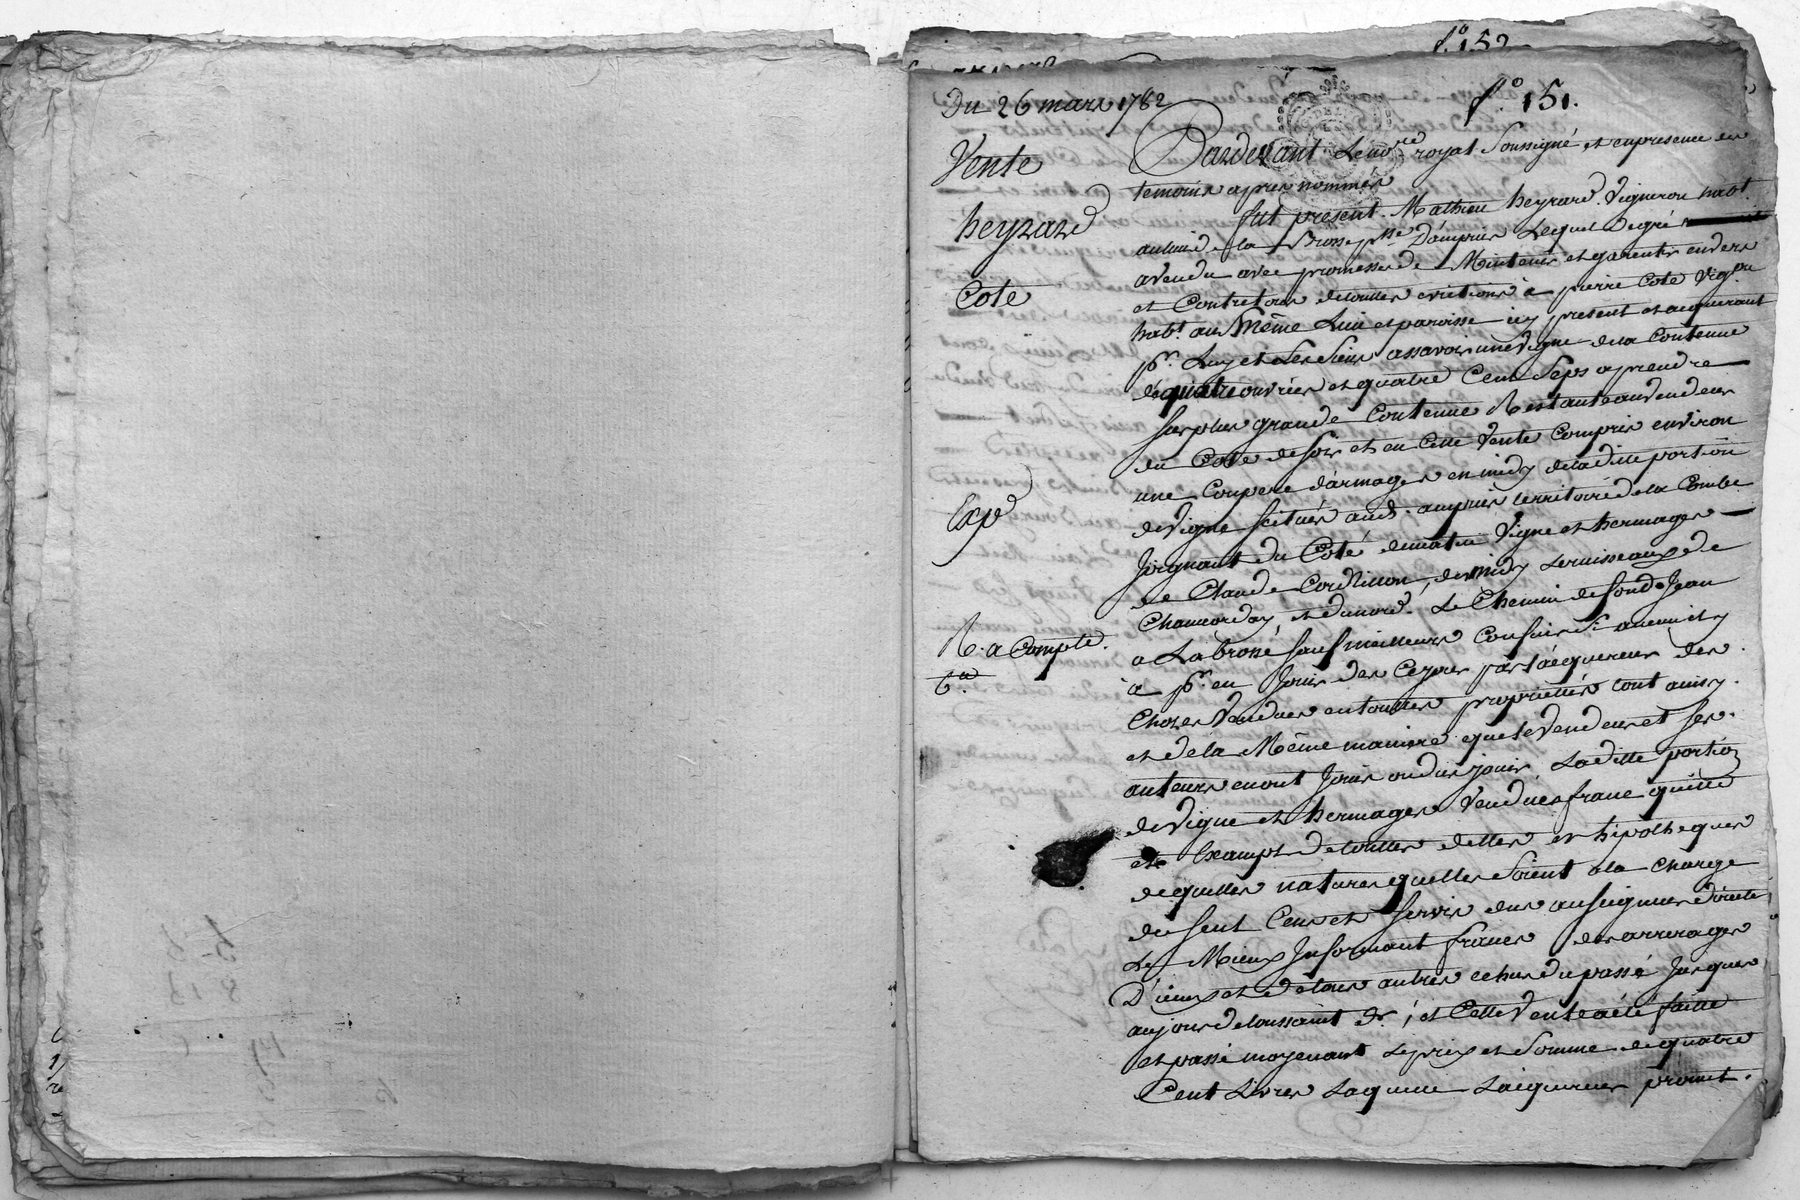 f.º 152
Du 26 mars 1782
f.º 151.
Vente
heyrard
Cote
Expé
R. a Compte.
6.#
Pardevant Le no.re royal Soussigné et en presence des
temoins apres nommés
fut present Mathieu heyrard Vigneron habt.
au lieu de la Brosse p.sse D'ampuis Lequel de gré
a vendu avec promesse de Mintenir et garentir envers
et Contre tous de touttes evictions à pierre Cote Vig.on
habt. au Même Lieu et paroisse icy present et acquerant
pr. Luy et Les Siens assavoir une Vigne de la Contenue
de quatre ouvrées et quatre Cent Seps a prendre
sur plus grande Contenue Restante au vendeur
du Coté de soir et en Cette Vente Compris environ
une Coupée d'armages en midy de la ditte portion
de Vigne scitués aud. ampuis territoire de la Combe
Joignant du Coté de matin Vigne et hermages
de Claude Cordillon, de midy Le ruisseaux de
Chamorday, et du nord Le Chemin de fond Jean
a La brosse sauf meilleurs Confins Sy aucuns il y
a pr. en Jouir des Ce jour par l'acquereur des
Choses Vendues en touttes proprietés tout ainsy
et de la Même maniere que le Vendeur et ses
auteurs en ont Jouis ou du jouir La ditte portion
de Vigne et hermages Vendues franc quitte
et Exampt de touttes dettes et hipotheques
de quelles natures quelles Soient a la Charge
du seul Cens et servis dus au seigneur directe
Le Mieux Informant francs des arrerages
D'iceux et de tous autres echus du passé Jusques
au jour de toussaint dr. ; et Cette Vente a été faitte
et passé moyenant Le prix et Somme de quatre
Cent Livres Laquelle L'aiquereur promet